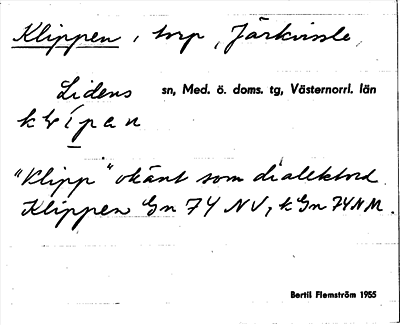 Klippen, torp, Järkvissle,
Lidens sn, Med. ö. doms. tg, Västernorrl. län
"Klipp" okänt som dialektord.
Klippen Gn 74 NV, k Gn 74 NM.
Bertil Flemström 1955